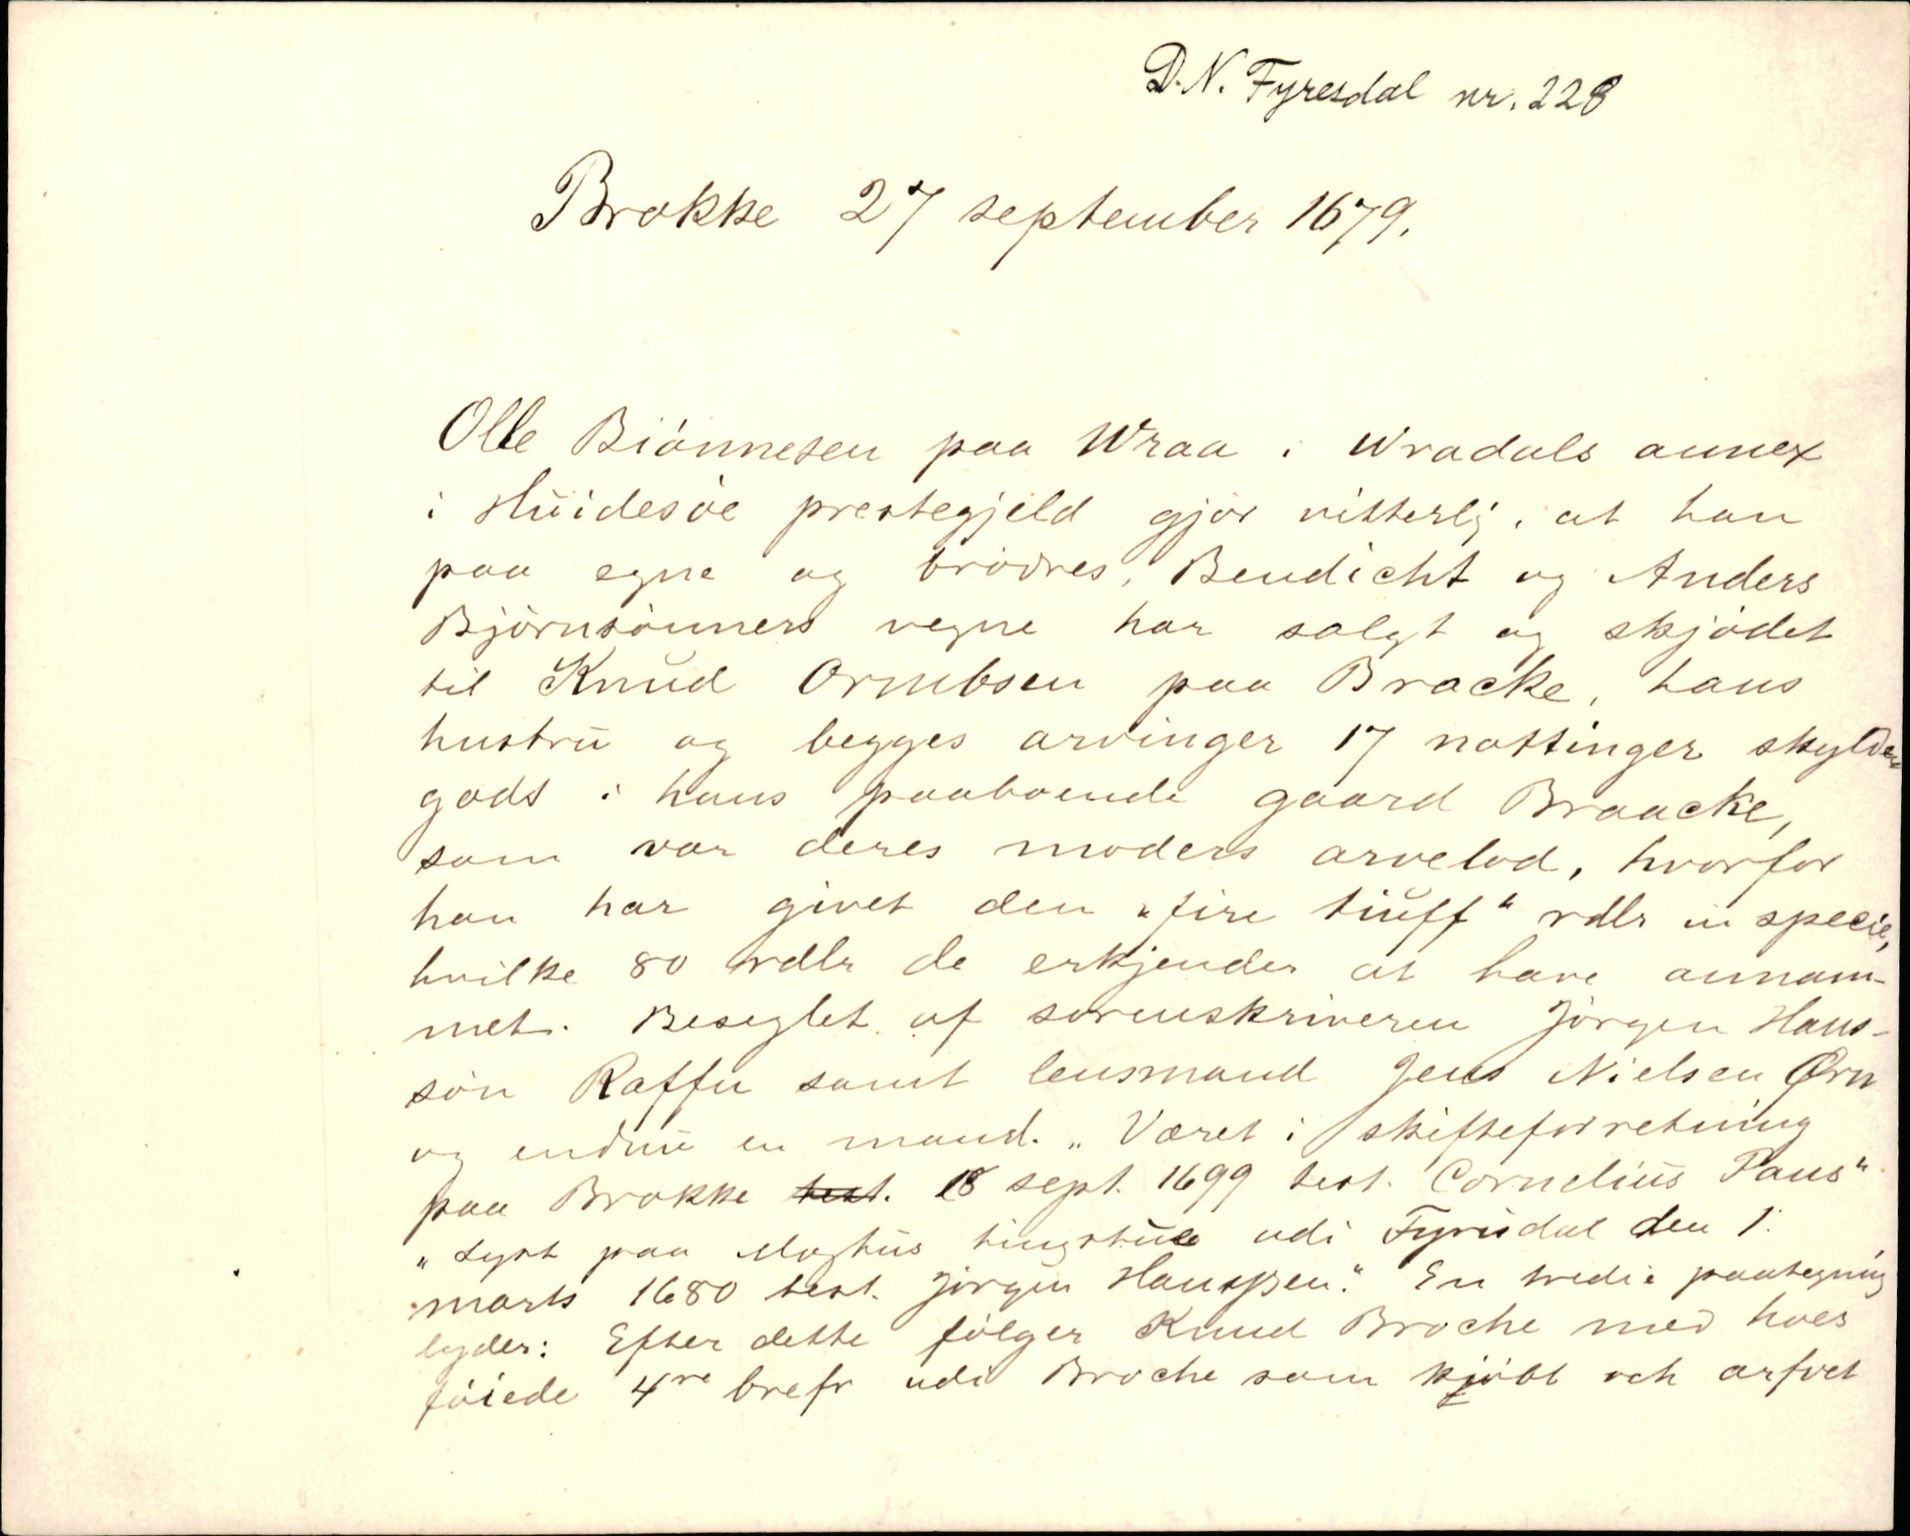 D.N. Fyresdal nr. 228
Brokke 27 september 1679.
Olle Biönnesen paa Wraa i Wradals annex
i Huidesøe prestegjeld gjør vitterlig, at han
paa egne og brødres, Bendicht og Anders
Bjørnsønners vegne har solgt og skjødet
til Knud Ormbsen paa Bracke, hans
hustru og begges arvinger 17 nottinger skylden
gods i hans paaboende gaard Braacke,
som var deres moders arvelod, hvorfor
han har givet dem "fire tiuff" rdlr in specie,
hvilke 80 rdlr de erkjender at have annam-
met. Beseglet af sorenskriveren Jørgen Hans-
søn Raffn samt lensmand Jens Nielsen Ørn
og endnu en mand. "Været i skifteforretning
paa Brokke test. 18 sept. 1699 test. Cornelius Paus"
"Lyst paa Moghus tingstue udi Fyrisdal den 1.
marts 1680 test. Jørgen Hansszen." En tredie paategning
lyder: Efter dette følger Knud Broche med hoes
føiede 4re brefr udi Broche som kjöbt och arfvet